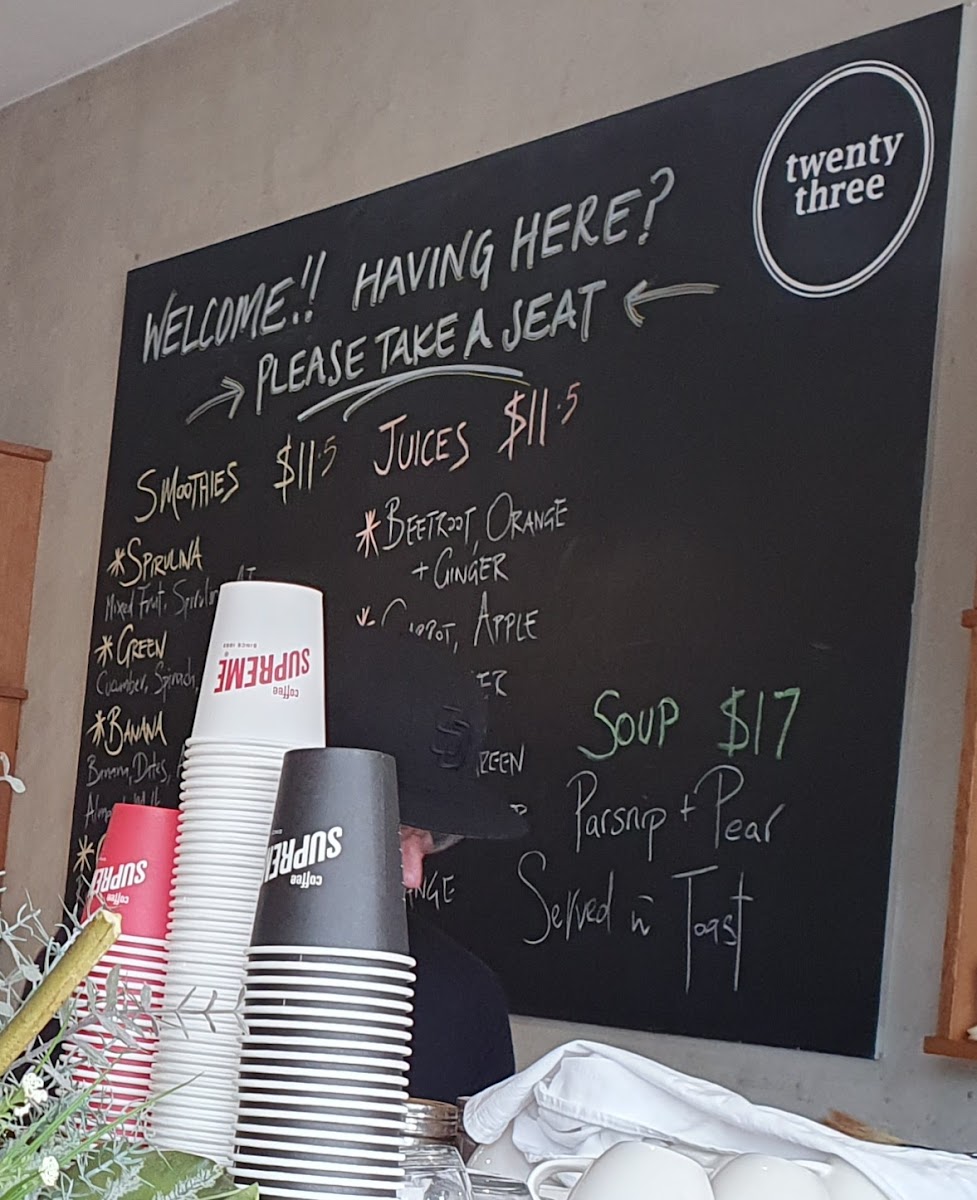 twenty
three
WELCOME!! HAVING HERE?
→ PLEASE TAKE A SEAT ←
SMOOTHIES $11.5
*SPIRULINA
Mixed Fruit,
*GREEN
Cucumber, Spinach,
*BANANA
Banana, Dates,
*
JUICES $11.5
*BEETROOT, ORANGE
+ GINGER
* APPLE
SOUP $17
Parsnip + Pear
Served n̄ Toast
coffee
SUPREME
coffee
SUPREME
coffee
SUPREME
SF